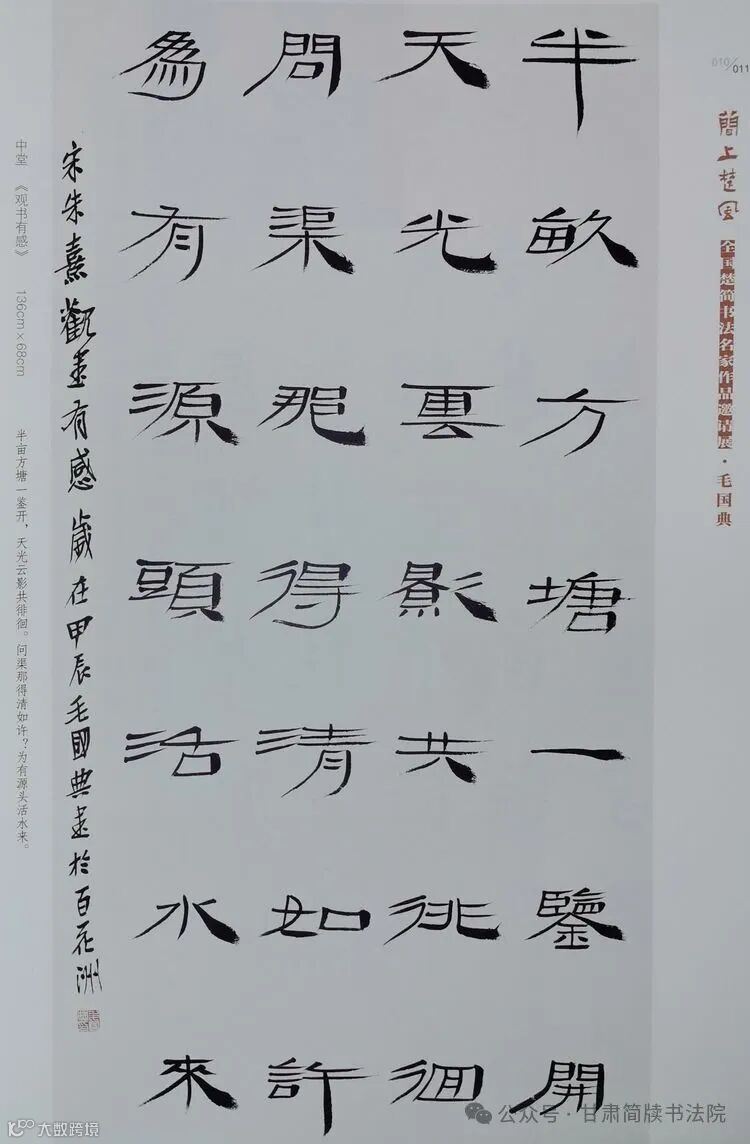 半畝方塘一鑒開
天光雲影共徘徊
問渠那得清如許
為有源頭活水來
宋朱熹觀書有感歲在甲辰毛國典書於百花洲
010/011
简上楚风 全国楚简书法名家作品邀请展·毛国典
中堂 《观书有感》 136cm×68cm 半亩方塘一鉴开，天光云影共徘徊。问渠那得清如许？为有源头活水来。
公众号·甘肃简牍书法院
大数跨境